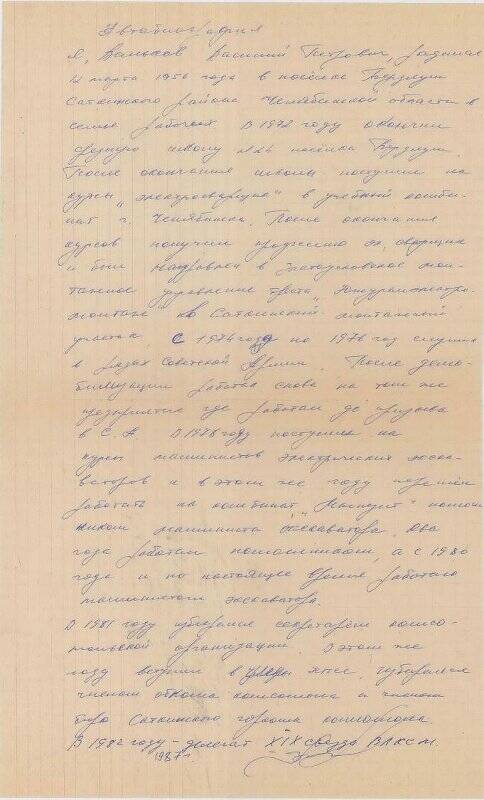 Автобиография
Я, Ваньков Василий Петрович, родился
12 марта 1956 года в посёлке Бердяуш
Саткинского района Челябинской области в
семье рабочего. В 1972 году окончил
среднюю школу посёлка Бердяуш.
После окончания школы поступил на
курсы „электросварщик" в учебный комби-
нат г. Челябинска. После окончания
курсов получил профессию эл. сварщик
и был направлен в Златоустовское мон-
тажное управление треста „Южуралэлектро-
монтаж" в Саткинский монтажный
участок. С 1974 года по 1976 год служил
в рядах Советской Армии. После демо-
билизации работал снова на том же
предприятии где работал до призыва
в С. А. В 1978 году поступил на
курсы машинистов электрических экска-
ваторов и в этом же году перешёл
работать на комбинат „Магнезит" помощ
ником машиниста экскаватора. Два
года работал помощником, а с 1980
года и по настоящее время работаю
машинистом экскаватора.
В 1981 году избирался секретарём комсо-
мольской организации. В этом же
году вступил в члены КПСС, избирался
членом обкома комсомола и членом
бюро Саткинского горкома комсомола
В 1982 году - делегат XIX съезда ВЛКСМ.
1987 г